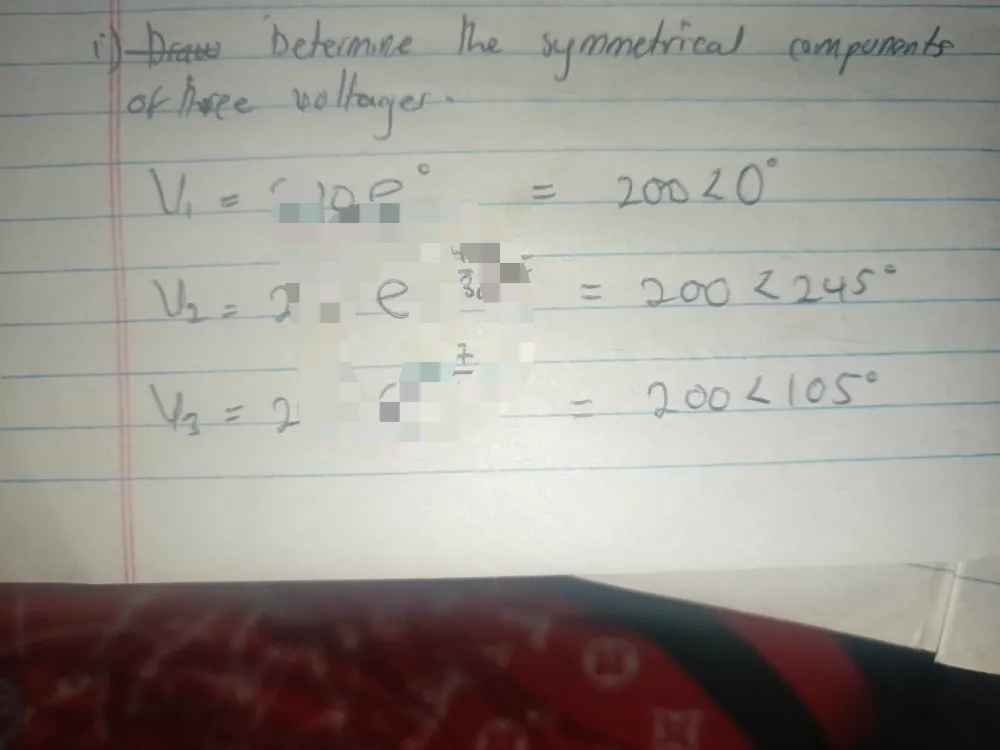 i) Determine the symmetrical components
of three voltages.
V₁ = e° = 200<0°
V₂ = 2 e = 200<245°
V₃ = 2 = 200<105°